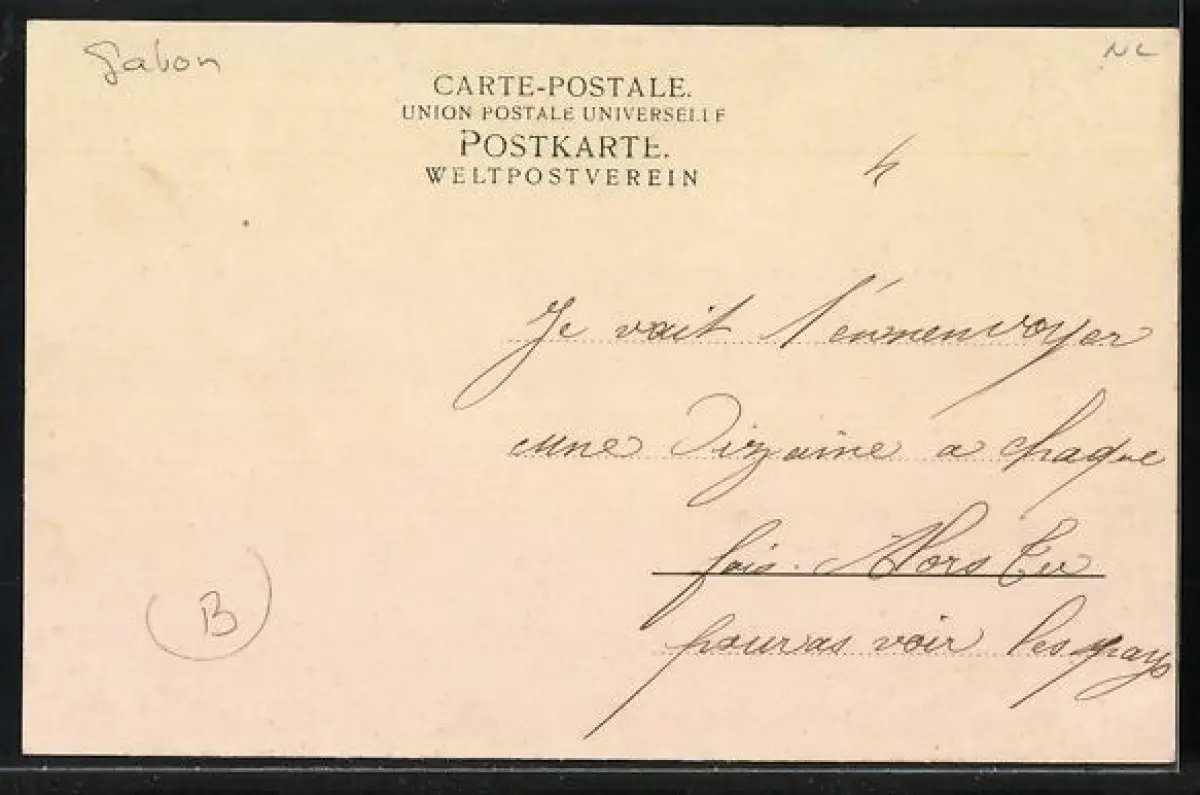 Gabon
NL
CARTE-POSTALE.
UNION POSTALE UNIVERSELLE
POSTKARTE.
WELTPOSTVEREIN
4
Je vait t'enmenvoyer
une Dizaine a chaque
fois. Alors Tu
pouras voir les pays
B